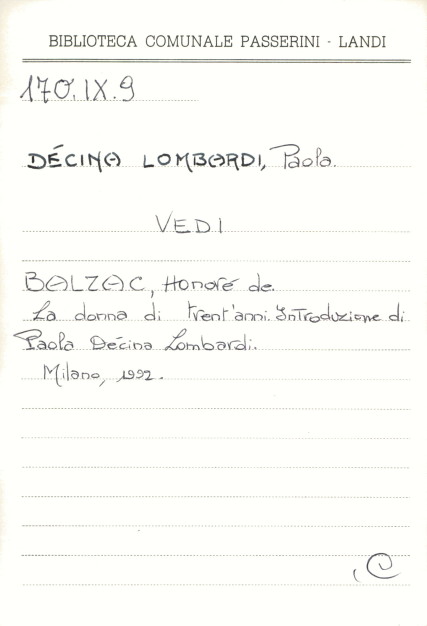 BIBLIOTECA COMUNALE PASSERINI - LANDI
170.IX.9
DÉCINA LOMBARDI, Paola.
VEDI
BALZAC, Honoré de.
La donna di trent'anni. Introduzione di
Paola Décina Lombardi.
Milano, 1992.